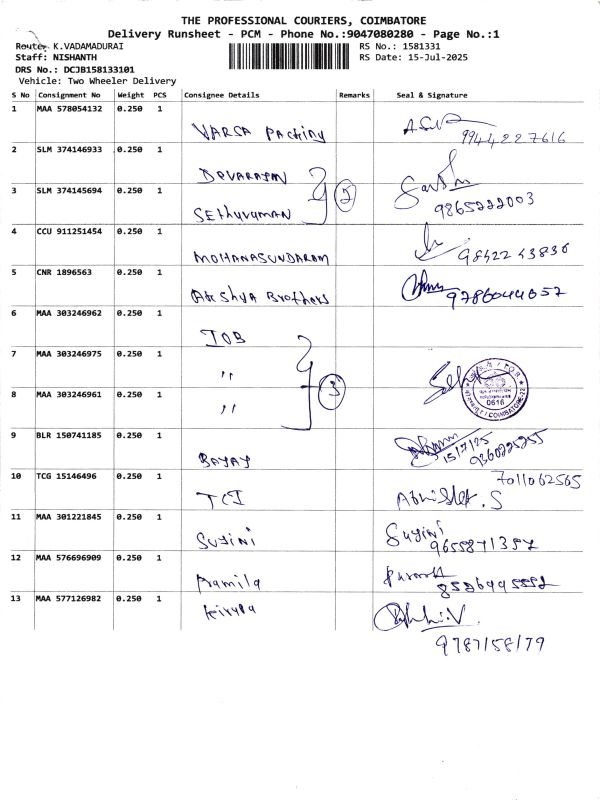 THE PROFESSIONAL COURIERS, COIMBATORE
Delivery Runsheet - PCM - Phone No.:9047080280 - Page No.:1
Route: K.VADAMADURAI RS No.: 1581331
Staff: NISHANTH RS Date: 15-Jul-2025
DRS No.: DCJB158133101
Vehicle: Two Wheeler Delivery
S No Consignment No Weight PCS Consignee Details Remarks Seal & Signature
1 MAA 578054132 0.250 1
VARSA PACKING 9944227616
2 SLM 374146933 0.250 1
DEVARAJAN
3 SLM 374145694 0.250 1 2
SETHURUMAN 9865222003
4 CCU 911251454 0.250 1
MOHANASUNDARAM 9842243836
5 CNR 1896563 0.250 1
AKSHYA Brothers 9786044057
6 MAA 303246962 0.250 1
IOB
7 MAA 303246975 0.250 1
"
8 MAA 303246961 0.250 1 3
" 0616
COIMBATORE-22
9 BLR 150741185 0.250 1
15/7/25 9360225255
10 TCG 15146496 0.250 1 7011062565
TCI Abhishek.S
11 MAA 301221845 0.250 1
SUJINI Sujini
9655871357
12 MAA 576696909 0.250 1
Pramila
13 MAA 577126982 0.250 1
9787158179